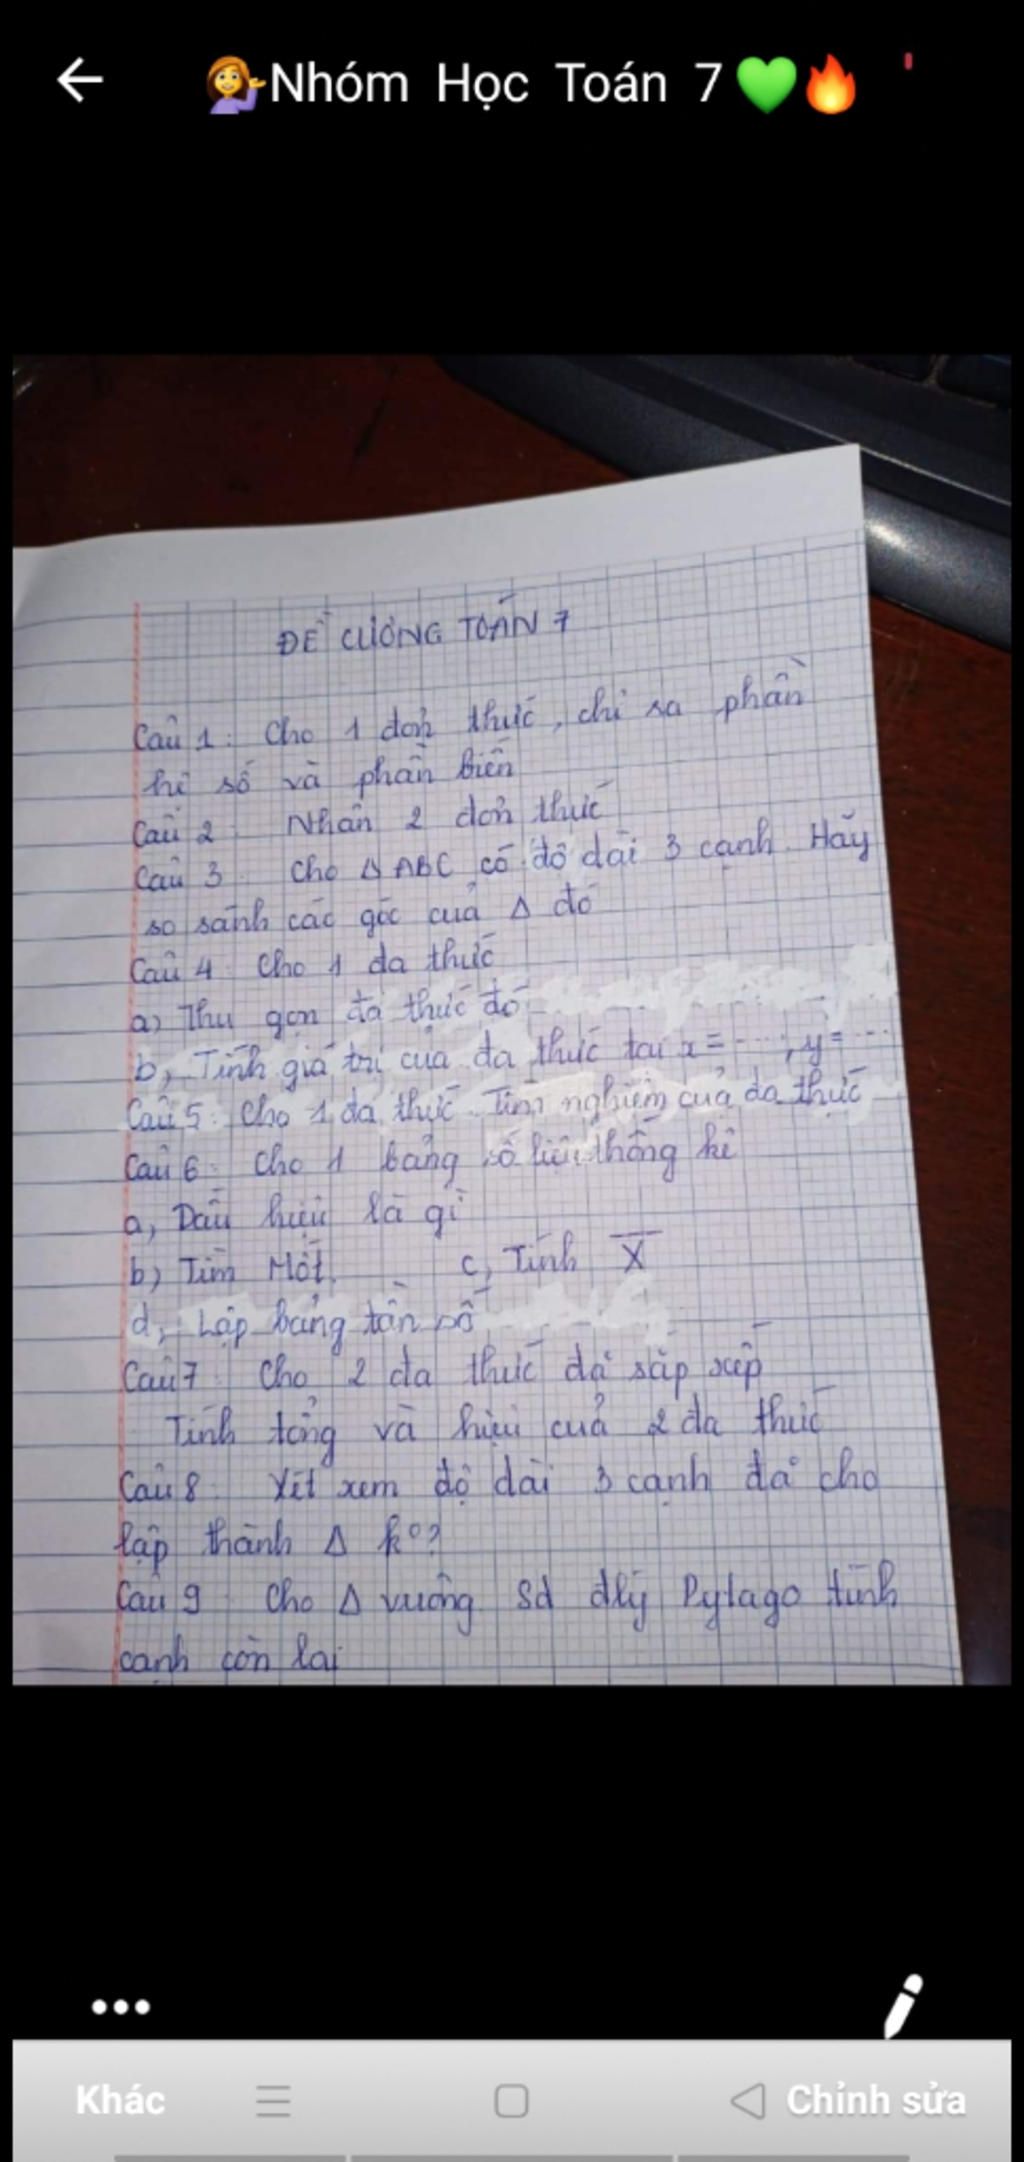 Nhóm Học Toán 7
ĐỀ CƯƠNG TOÁN 7
Câu 1: Cho 1 đơn thức, chỉ ra phần
hệ số và phần biến
Câu 2: Nhân 2 đơn thức
Câu 3: Cho Δ ABC có độ dài 3 cạnh. Hãy
so sánh các góc của Δ đó
Câu 4: Cho 1 đa thức
a) Thu gọn đa thức đó
b, Tính giá trị của đa thức tại x = ....; y = ....
Câu 5: Cho 1 đa thức. Tìm nghiệm của đa thức
Câu 6: Cho 1 bảng số liệu thống kê
a, Dấu hiệu là gì
b) Tìm Mốt. c, Tính X̅
d, Lập bảng tần số
Câu 7: Cho 2 đa thức đã sắp xếp
Tính tổng và hiệu của 2 đa thức
Câu 8: Xét xem độ dài 3 cạnh đã cho
lập thành Δ k°?
Câu 9: Cho Δ vuông sd đlý Pytago tính
cạnh còn lại
Khác Chỉnh sửa